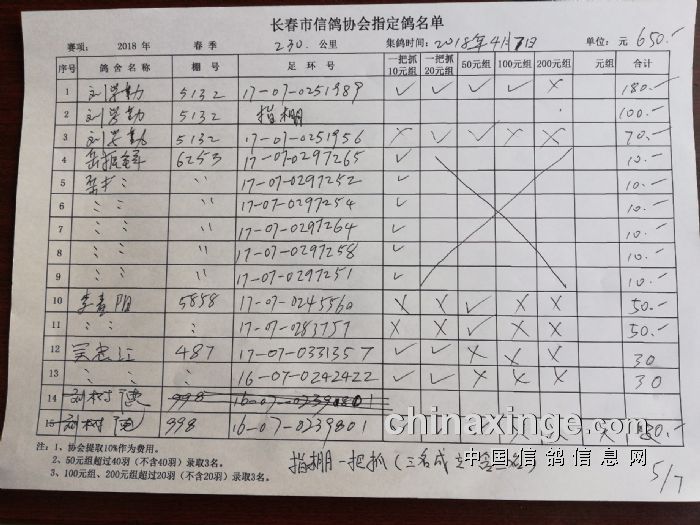 长春市信鸽协会指定鸽名单
赛项: 2018 年 春季 230 公里 集鸽时间: 2018年4月7日 单位: 元 650.-
序号 鸽舍名称 棚号 足环号 一把抓10元组 一把抓20元组 50元组 100元组 200元组 元组 合计
1 刘学勤 5132 17-07-0251989 ✓ ✓ ✓ ✓ × 180.-
2 刘学勤 5132 指棚 100.-
3 刘学勤 5132 17-07-0251956 × ✓ ✓ × × 70.-
4 6253 17-07-0297265 ✓ 10.-
5 〃 17-07-0297252 ✓ 10.-
6 〃 〃 17-07-0297254 ✓ 10.-
7 〃 17-07-0297264 ✓ 10.-
8 〃 〃 17-07-0297258 ✓ 10.-
9 〃 〃 17-07-0297251 ✓ 10.-
10 李春阳 5858 17-07-0245560 × × ✓ × × 50.-
11 〃 〃 17-07-0283757 × × ✓ × × 50.-
12 吴忠江 487 17-07-0331357 ✓ ✓ × × × 30
13 〃 16-07-0242422 ✓ ✓ × × × 30
14 刘树 998 16-07-0239801
15 刘树 998 16-07-0239801
注: 1、协会提取10%作为费用。
2、50元组超过40羽(不含40羽)录取3名。
3、100元组、200元组超过20羽(不含20羽)录取3名。
指棚一把抓(三名成立
5/7
chinaxinge.com
中国信鸽信息网